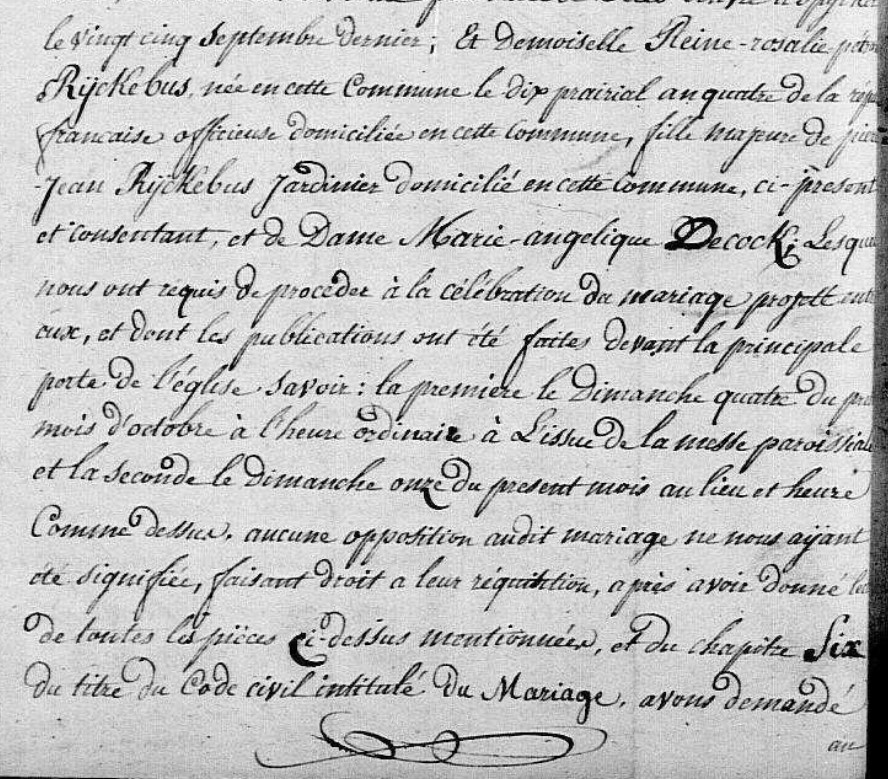 le vingt cinq septembre dernier; Et Demoiselle Reine-rosalie
Ryckebus, née en cette Commune le dix prairial an quatre de la
francaise officieuse domiciliée en cette Commune, fille majeure de
-Jean Ryckebus Jardinier domicilié en cette Commune, ci-present
et consentant, et de Dame Marie-angelique Decock; Lesqu
nous ont requis de proceder à la célébration du mariage projetté
eux, et dont les publications ont été faites devant la principale
porte de l'église savoir: la premiere le Dimanche quatre du
mois d'octobre à l'heure ordinaire à L'issue de la messe paroissiale
et la seconde le Dimanche onze du present mois au lieu et heure
Comme dessus. aucune opposition audit mariage ne nous ayant
été signifiée, faisant droit a leur réquisition, après avoir donné
de toutes les pièces ci-dessus mentionnées, et du chapitre Six
du titre du Code civil intitulé du Mariage, avons demandé
au